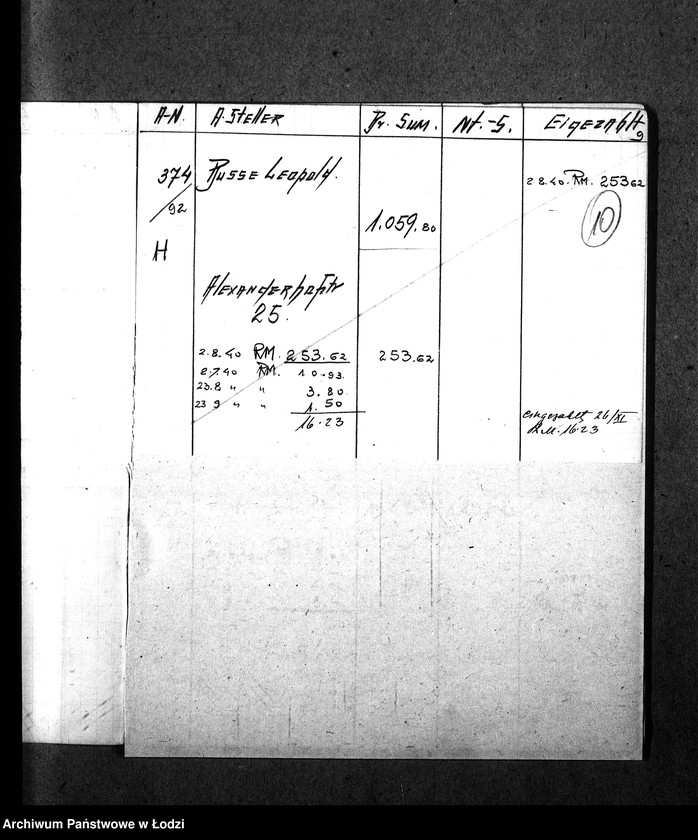 A-N. A-Steller Pr. Sum. Nt.-S. Eigezahlt
9
374 Busse Leopold. 2 8.40. RM. 253 62
/92 10
1.059.80
H
Alexanderhofstr
25.
2.8.40 RM. 253.62 253.62
2.7.40 RM. 10.93.
23.8 " " 3.80
23 9 " " 1.50
16.23
eingezahlt 26/XI
R.M. 16.23
Archiwum Państwowe w Łodzi